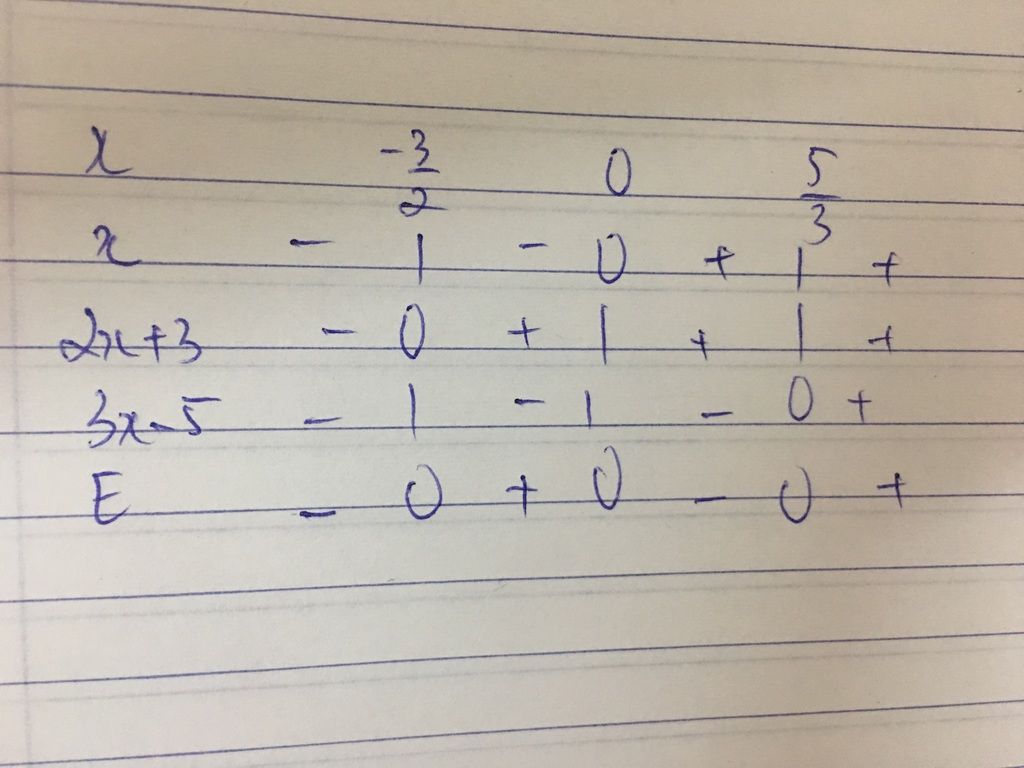 x -3/2 0 5/3
x - | - 0 + | +
2x+3 - 0 + | + | +
3x-5 - | - | - 0 +
E - 0 + 0 - 0 +